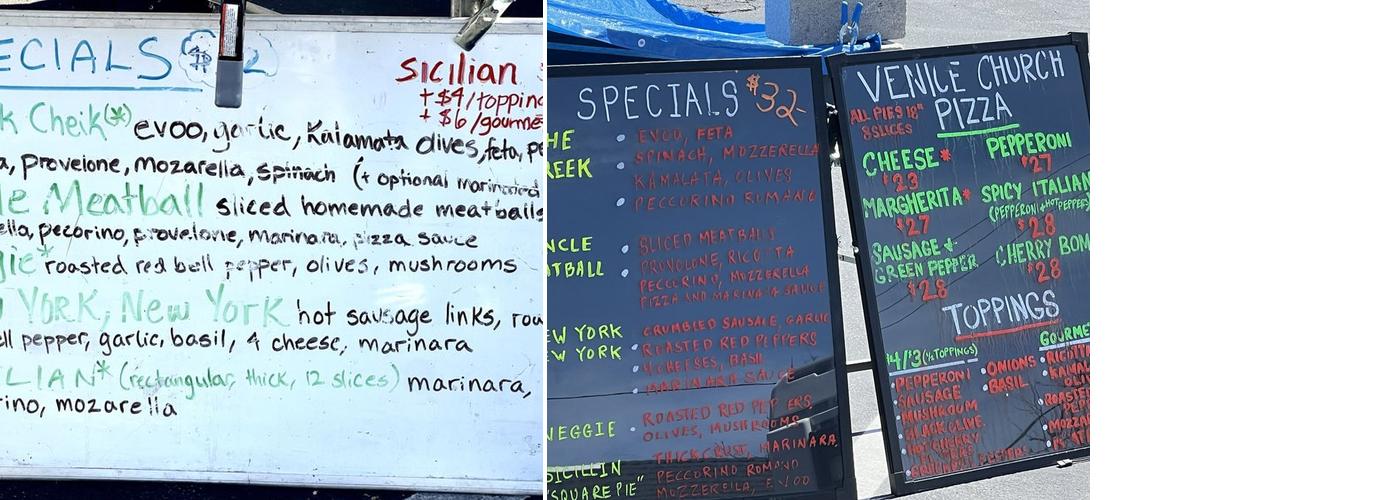 ECIALS $ 2
Sicilian
+$4/topping
+$6/gourme
k Cheik(*) evoo, garlic, Kalamata olives, feta, pe
a, provelone, mozarella, spinach (+ optional marinated
le Meatball sliced homemade meatballs
ella, pecorino, provelone, marinara, pizza sauce
gie* roasted red bell pepper, olives, mushrooms
YORK, New York hot sausage links, roa
ell pepper, garlic, basil, 4 cheese, marinara
ILIAN* (rectangular, thick, 12 slices) marinara,
rino, mozarella
SPECIALS $32-
HE
REEK
EVOO, FETA
SPINACH, MOZZERELLA
KAMALATA, OLIVES
PECCORINO ROMANO
NCLE
ATBALL
SLICED MEATBALLS
PROVOLONE, RICOTTA
PECCORINO, MOZZERELLA
PIZZA AND MARINARA SAUCE
EW YORK
EW YORK
CRUMBLED SAUSAGE, GARLIC
ROASTED RED PEPPERS
4 CHEESES, BASIL
MARINARA SAUCE
VEGGIE
ROASTED RED PEPPERS
OLIVES, MUSHROOMS
SICILLIN
"SQUARE PIE"
THICK CRUST, MARINARA,
PECCORINO ROMANO
MOZZERELLA, EVOO
VENICE CHURCH
PIZZA
ALL PIES 18"
8 SLICES
CHEESE*
$23
PEPPERONI
$27
MARGHERITA*
$27
SPICY ITALIAN
(PEPPERONI + HOT PEPPERS)
$28
SAUSAGE +
GREEN PEPPER
$28
CHERRY BOM
$28
TOPPINGS
$4/$3 (½ TOPPINGS)
PEPPERONI
SAUSAGE
MUSHROOM
BLACK OLIVE
HOT CHERRY
ONIONS
BASIL
GOURME
RICOTTA
KAMAL
OLIV
ROASTE
PEPP
MOZZA